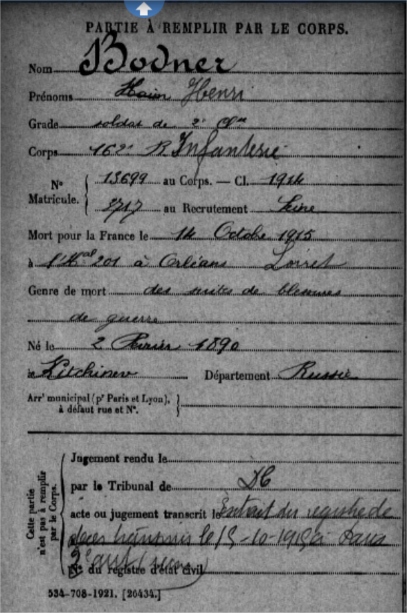 PARTIE À REMPLIR PAR LE CORPS.
Nom Bodner
Prénoms Haim Henri
Grade soldat de 2e Clse
Corps 162e R. Infanterie
Nº Matricule. 13699 au Corps. — Cl. 1914
2717 au Recrutement Seine
Mort pour la France le 14 Octobre 1915
à l'Hal 201 à Orléans Loiret
Genre de mort des suites de blessures
de guerre
Né le 2 Février 1890
à Kitchinev Département Russie
Arrt municipal (pr Paris et Lyon), à défaut rue et Nº.
Cette partie n'est pas à remplir par le Corps.
Jugement rendu le
par le Tribunal de DC
acte ou jugement transcrit le Extrait du registre de
le 15-10-1915 à Paris
Nº du registre d'état civil
534-708-1921. [26434.]